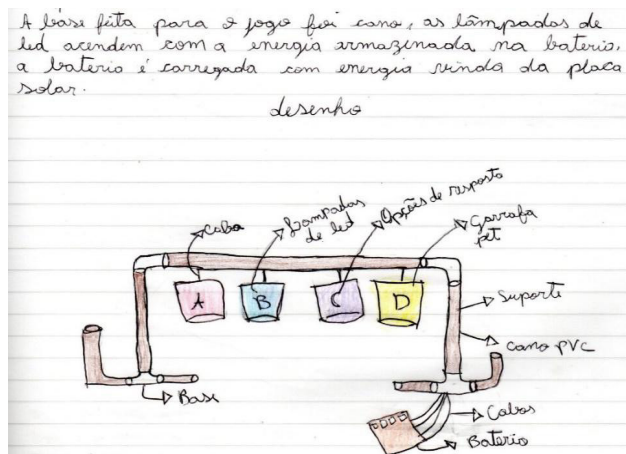 A base feita para o jogo foi cano, as lâmpadas de
led acendem com a energia armazinada na bateria,
a bateria é carregada com energia vinda da placa
solar.
desenho
Cabo
Lampadas
de led
Opções de resposta
Garrafa
pet
A
B
C
D
Suporte
cano PVC
Base
Cabos
Bateria